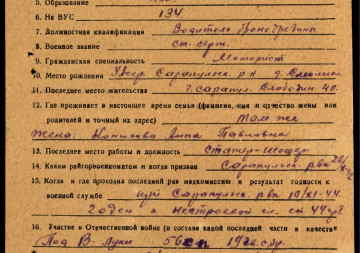 5. Образование
6. На ВУС 134
7. Должностная квалификация Водитель бронедрезины
8. Военное звание ст. серж.
9. Гражданская специальность Моторист
10. Место рождения Сарапульск. р-н. д.
11. Последнее место жительства г. Сарапул. Слободин. 40.
12. Где проживает в настоящее время семья (фамилия, имя и отчество жены или
родителей и точный их адрес) Там же
Жена: Анна Павловна
13. Последнее место работы и должность шофер
14. Каким райгорвоенкоматом и когда призван Сарапульск. рвк
15. Когда и где проходил последний раз медкомиссию и результат годности к
военной службе при Сарапульск. рвк 10/XI-44.
Годен к нестроевой сл. ст 44
16. Участие в Отечественной войне (в составе какой последней части в качестве
Под В-Луки 56